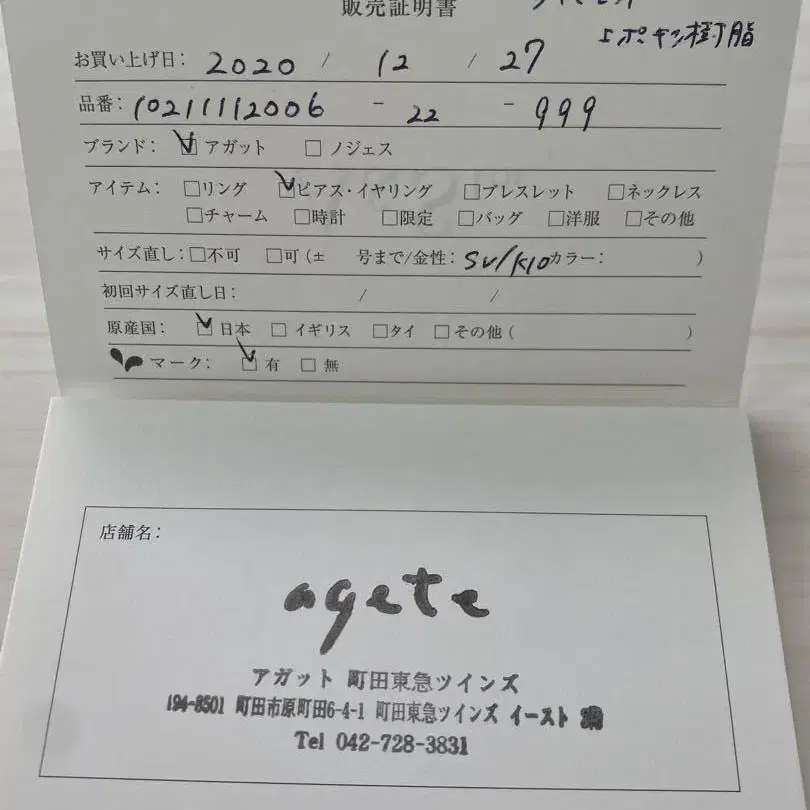 販売証明書
エポキシ樹脂
お買い上げ日: 2020 / 12 / 27
品番: 10211112006 - 22 - 999
ブランド: ☑アガット □ノジェス
アイテム: □リング ☑ピアス・イヤリング □ブレスレット □ネックレス
□チャーム □時計 □限定 □バッグ □洋服 □その他
サイズ直し: □不可 □可 (± 号まで/金性: SV/K10 カラー: )
初回サイズ直し日: / /
原産国: ☑日本 □イギリス □タイ □その他 ( )
マーク: ☑有 □無
店舗名:
agete
アガット 町田東急ツインズ
194-8501 町田市原町田6-4-1 町田東急ツインズ イースト
Tel 042-728-3831